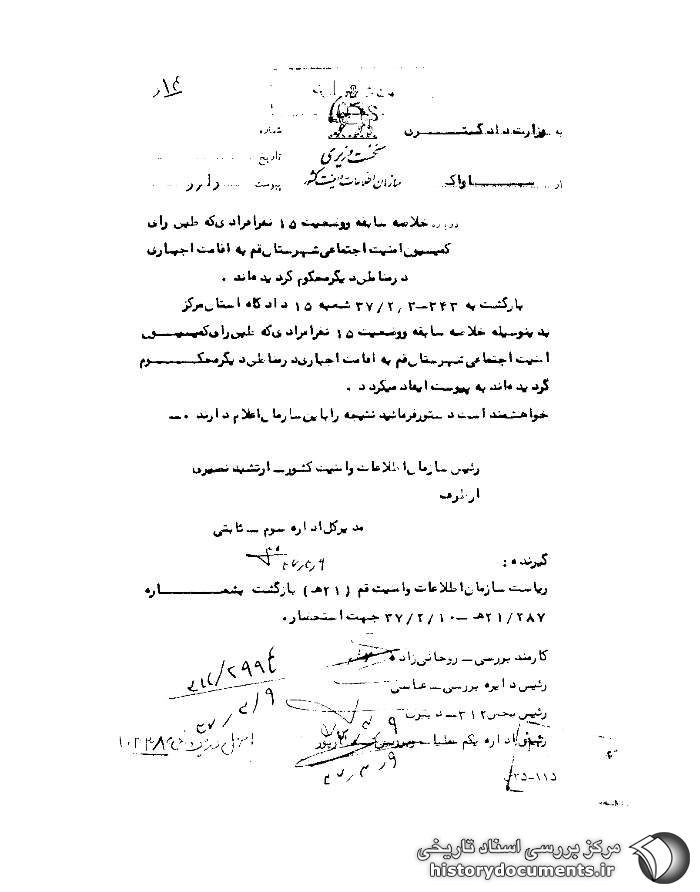 ۱۴ر
به وزارت دادگستری
شماره
نخست وزیری
تاریخ
از ساواک
سازمان اطلاعات و امنیت کشور
پیوست دارد
درباره خلاصه سابقه ووضعیت ۱۵ نفرافرادی که طبق رای
کمیسیون امنیت اجتماعی شهرستان قم به اقامت اجباری
درمناطق دیگرمحکوم گردیده اند .
بازگشت به ۲۴۳-۳۷/۲/۳ شعبه ۱۵ دادگاه استان مرکز
بدینوسیله خلاصه سابقه ووضعیت ۱۵ نفرافرادی که طبق رای کمیسیون
امنیت اجتماعی شهرستان قم به اقامت اجباری درمناطق دیگرمحکوم
گردیده اند به پیوست ایفاد میگردد .
خواهشمند است دستورفرمائید نتیجه رابه این سازمان اعلام دارند .
رئیس سازمان اطلاعات وامنیت کشور - ارتشبد نصیری
ازطرف
مدیرکل اداره سوم - ثابتی
۳۷/۳/۹
گیرنده :
ریاست سازمان اطلاعات وامنیت قم (۲۱ه) بازگشت بشماره
۲۱/۲۸۷ه - ۳۷/۲/۱۰ جهت استحضار .
کارمند بررسی - روحانی زاده
رئیس دایره بررسی - عباسی
رئیس بخش ۳۱۲ -
۳۷/۳/۹
رئیس اداره یکم عملیات و بررسی
۳۷/۳/۹
۳۵-۱۱۵
مرکز بررسی اسناد تاریخی
historydocuments.ir